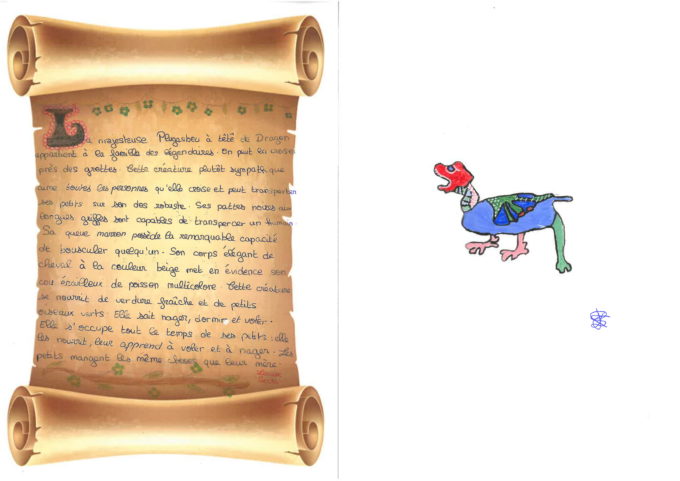 La majesteuse Plagasbeu à tête de Dragon
appartient à la famille des légendaires. On peut la croiser
près des grottes. Cette créature plutôt sympathique
aime toutes les personnes qu'elle croise et peut transporter
ses petits sur son dos robuste. Ses pattes noires aux
longues griffes sont capables de transpercer un humain.
Sa queue marron possède la remarquable capacité
de bousculer quelqu'un. Son corps élégant de
cheval à la couleur beige met en évidence son
cou écailleux de poisson multicolore. Cette créature
se nourrit de verdure fraîche et de petits
oiseaux verts. Elle sait nager, dormir et voler.
Elle s'occupe tout le temps de ses petits : elle
les nourrit, leur apprend à voler et à nager. Les
petits mangent les même choses que leur mère.